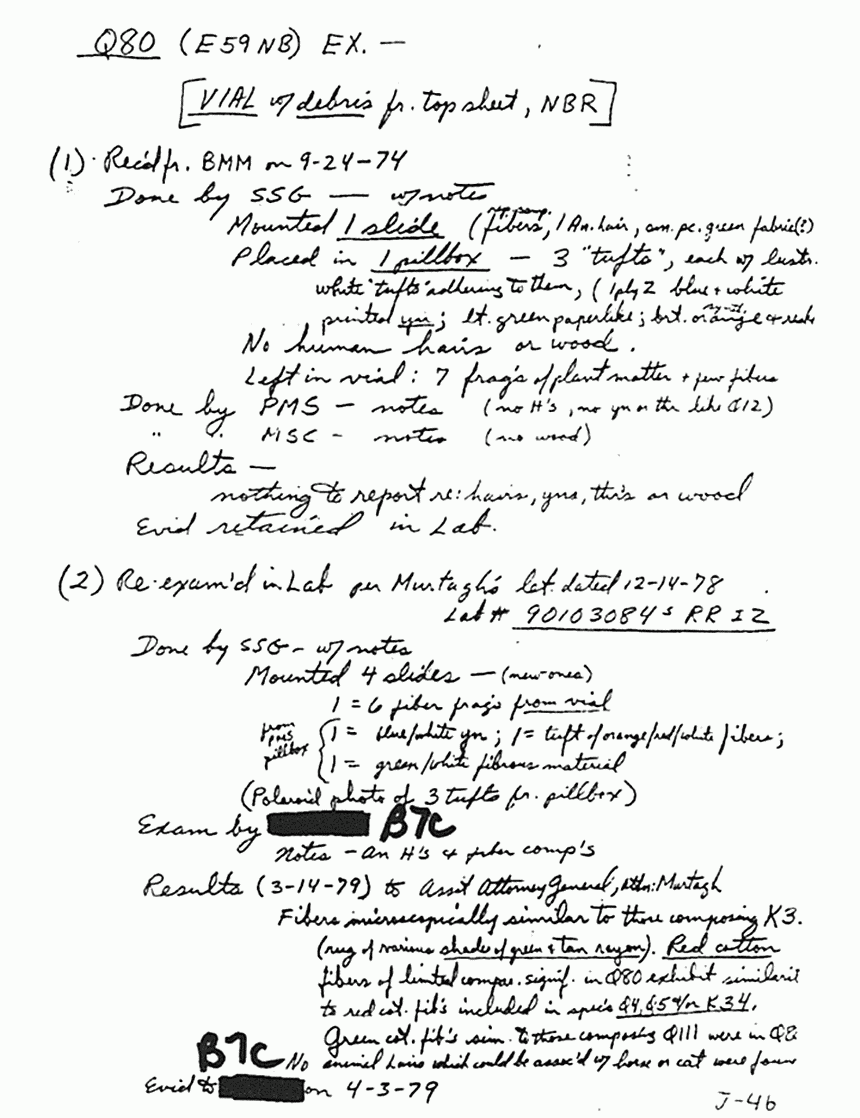 Q80 (E59NB) EX. —
[VIAL w/ debris fr. top sheet, NBR]
(1) Rec'd fr. BMM on 9-24-74
Done by SSG — w/notes
Mounted 1 slide (fibers, 1 An. hair, sm. pc. green fabric(?)
Placed in 1 pillbox — 3 "tufts", each w/ lustr.
white "tufts" adhering to them, (1 ply Z blue + white
printed yn; lt. green paperlike; brt. orange + red
No human hairs or wood.
Left in vial: 7 frag's of plant matter + few fibers
Done by PMS — notes (no H's, no yn or th like Q12)
" " MSC - notes (no wood)
Results —
nothing to report re: hairs, yns, th's or wood
Evid retained in Lab.
(2) Re-exam'd in Lab per Murtagh's let. dated 12-14-78
Lab # 90103084 S RR IZ
Done by SSG - w/ notes
Mounted 4 slides — (new ones)
1 = 6 fiber frag's from vial
from PMS pillbox { 1 = blue/white yn; 1 = tuft of orange/red/white fibers;
1 = green/white fibrous material
(Polaroid photo of 3 tufts fr. pillbox)
Exam by B7C
Notes - An H's & fiber comp's
Results (3-14-79) to Assit Attorney General, Attn: Murtagh
Fibers microscopically similar to those composing K3.
(rug of various shades of green & tan rayon). Red cotton
fibers of limited compar. signif. in Q80 exhibit similarit
to red cot. fib's included in spec's Q4, Q59/or K34.
Green cot. fib's sim. to those composing Q111 were in Q8
B7C No animal hairs which could be assoc'd w/ horse or cat were foun
Evid to on 4-3-79
J-46